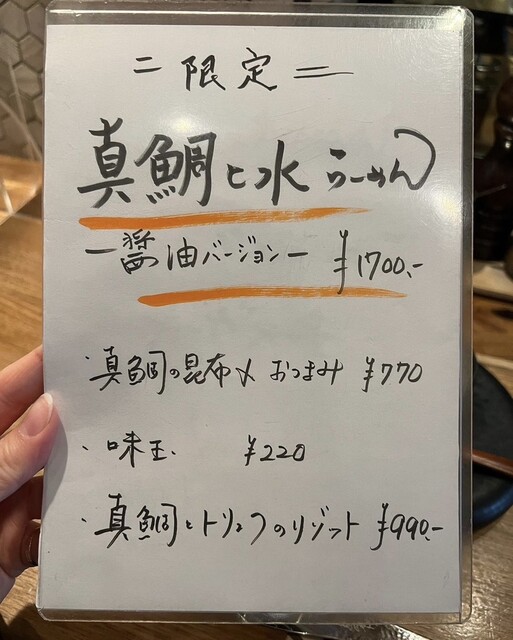 ＝限定＝
真鯛と水らーめん
ー醤油バージョンー ¥1700.-
・真鯛の昆布〆 おつまみ ¥770
・味玉 ¥220
・真鯛とトリュフのリゾット ¥990.-